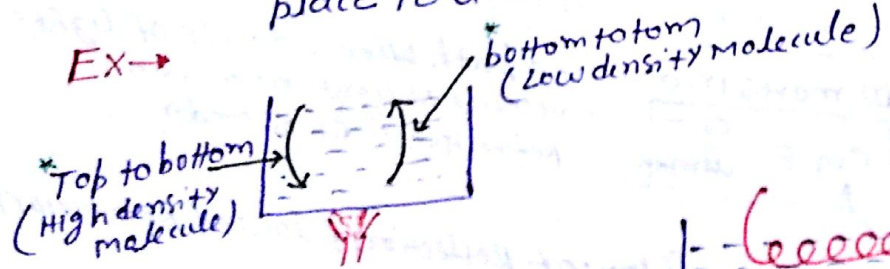 place to a
Ex→
*bottom to tom
(Low density Molecule)
*Top to bottom
(High density
molecule)